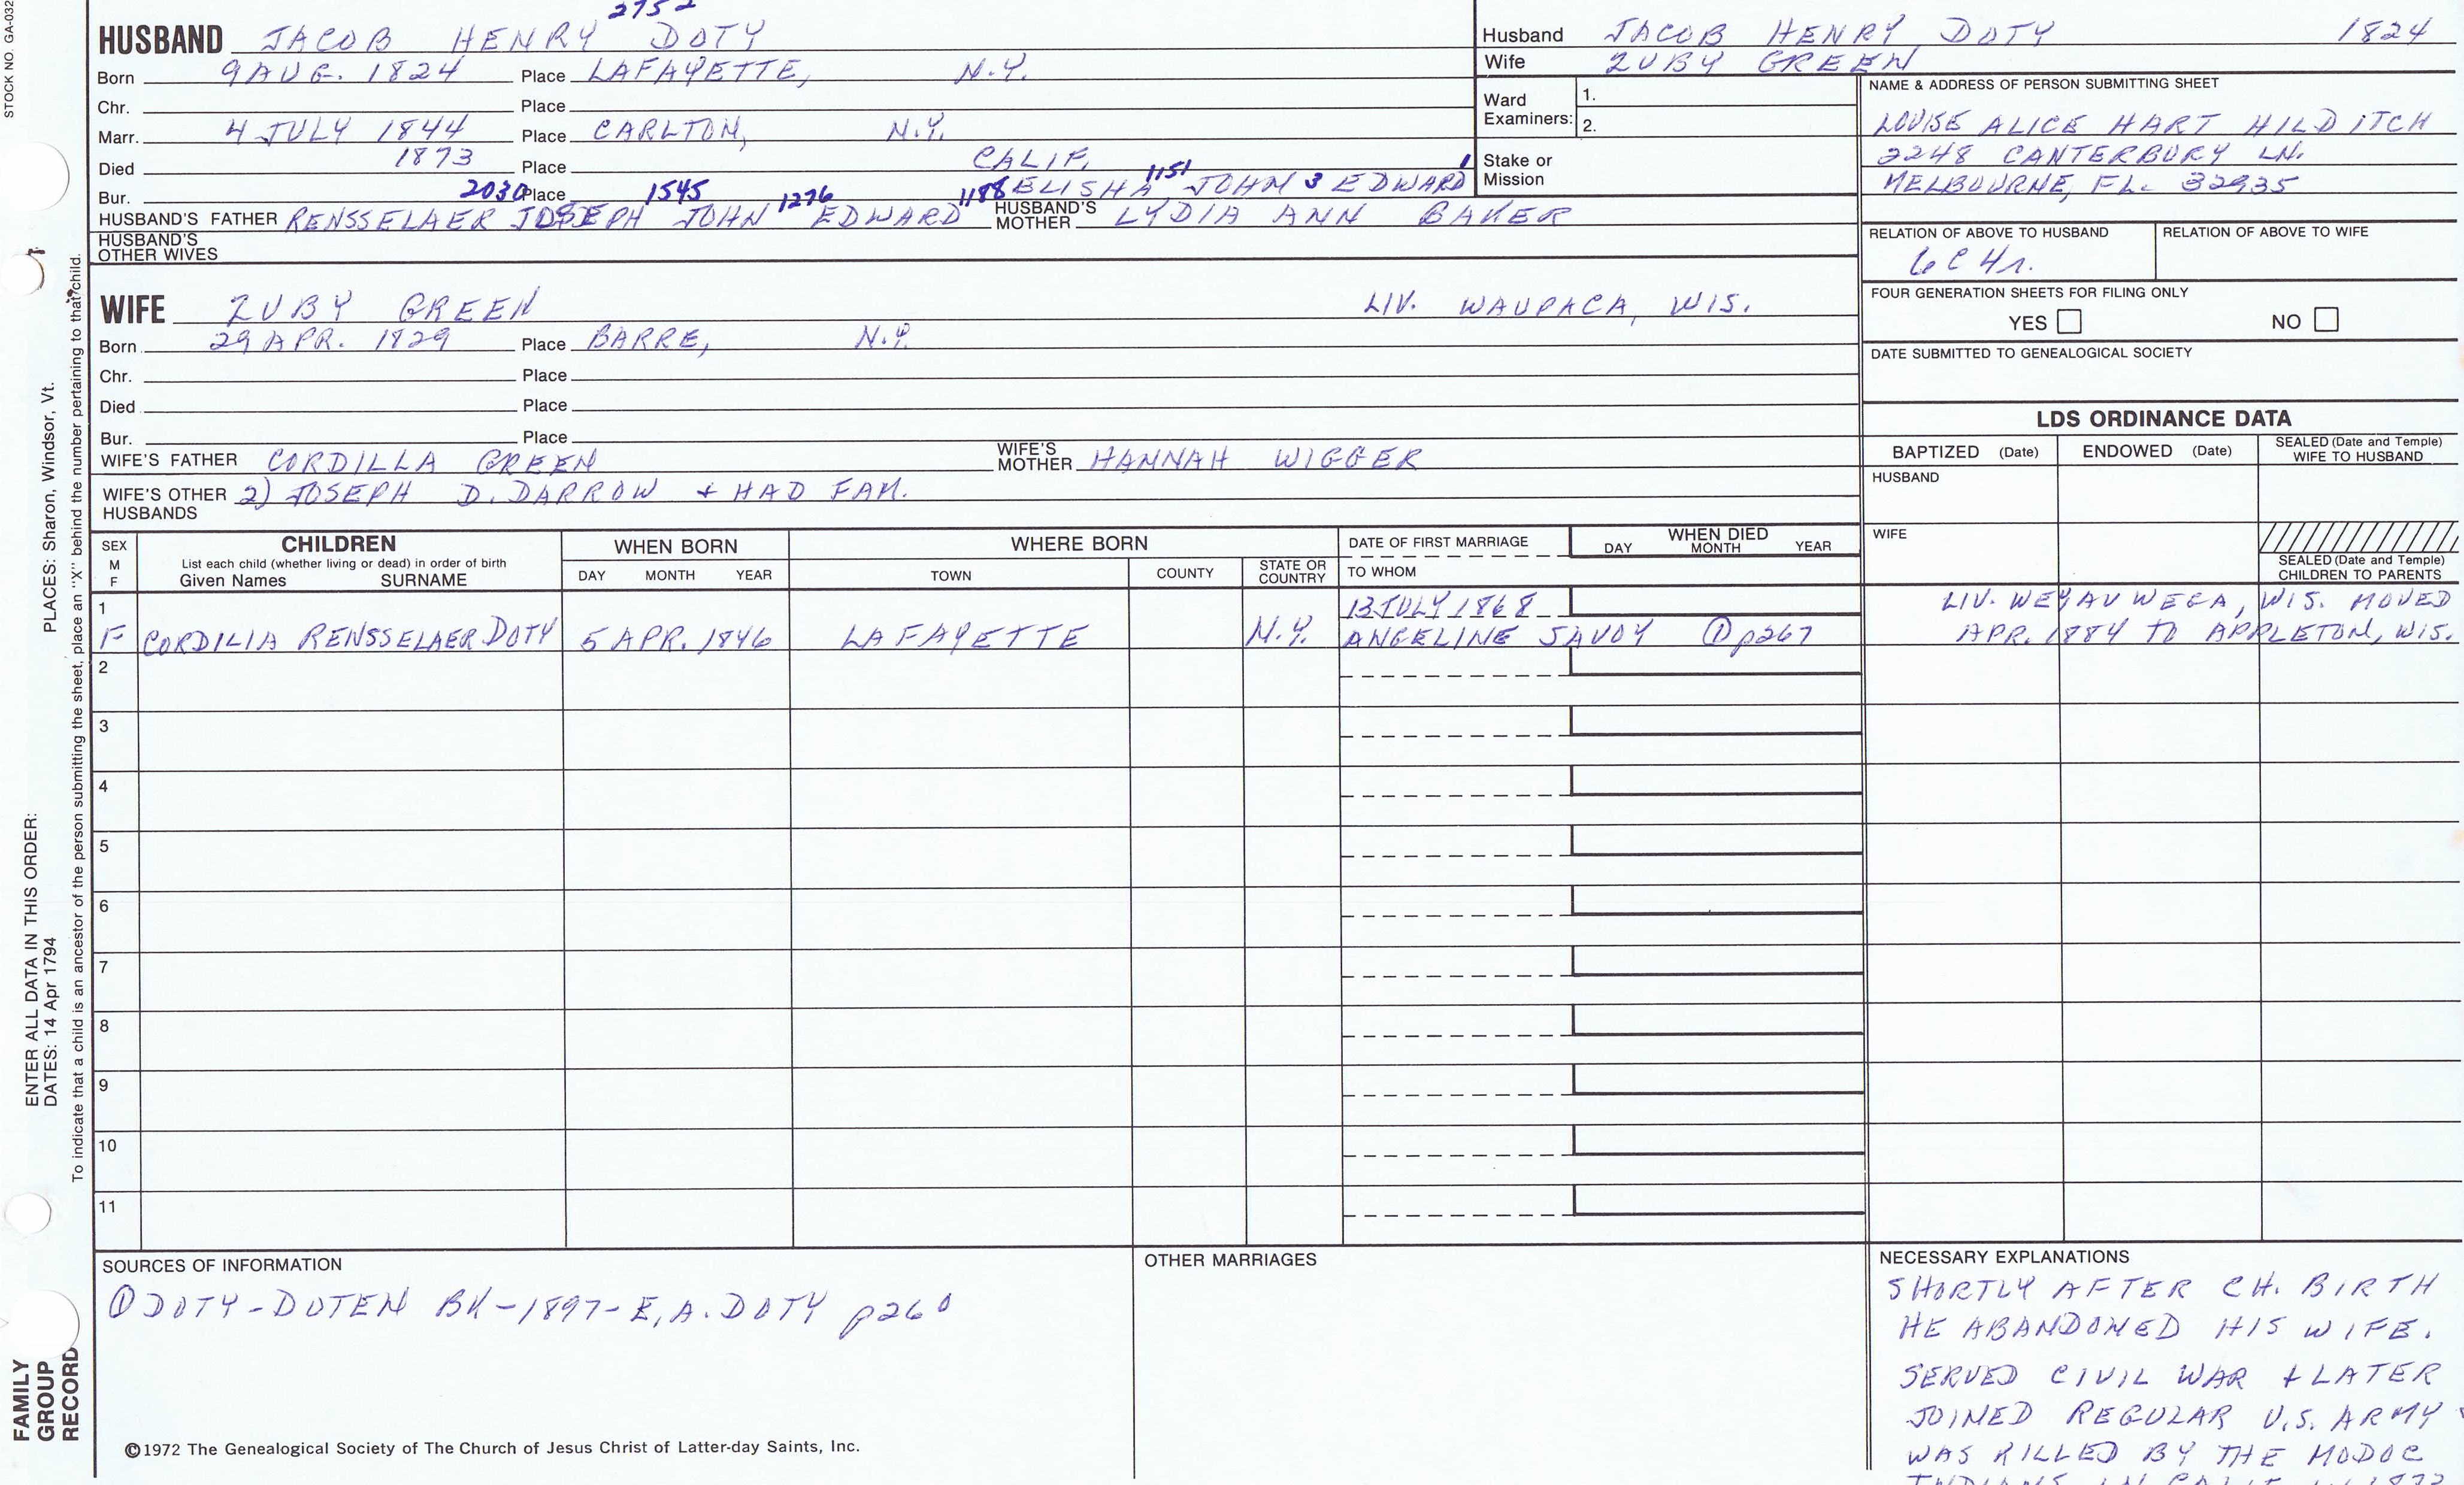 STOCK NO. GA-032
2752
HUSBAND JACOB HENRY DOTY
Born 9 AUG. 1824 Place LAFAYETTE, N.Y.
Chr. Place
Marr. 4 JULY 1844 Place CARLTON, N.Y.
Died 1873 Place CALIF.
Bur. Place
2030 1545 1276 1188 ELISHA 1151 JOHN 3 EDWARD 1
HUSBAND'S FATHER RENSSELAER JOSEPH JOHN EDWARD HUSBAND'S MOTHER LYDIA ANN BAKER
HUSBAND'S OTHER WIVES
Husband JACOB HENRY DOTY 1824
Wife ZUBY GREEN
Ward Examiners: 1.
2.
Stake or Mission
NAME & ADDRESS OF PERSON SUBMITTING SHEET
LOUISE ALICE HART HILDITCH
2248 CANTERBURY LN.
MELBOURNE, FL. 32935
RELATION OF ABOVE TO HUSBAND RELATION OF ABOVE TO WIFE
6C 4r.
FOUR GENERATION SHEETS FOR FILING ONLY
YES NO
DATE SUBMITTED TO GENEALOGICAL SOCIETY
WIFE ZUBY GREEN LIV. WAUPACA, WIS.
Born 29 APR. 1829 Place BARRE, N.Y.
Chr. Place
Died Place
Bur. Place
WIFE'S FATHER CORDILLA GREEN WIFE'S MOTHER HANNAH WIGGER
WIFE'S OTHER HUSBANDS 2) JOSEPH D. DARROW + HAD FAM.
LDS ORDINANCE DATA
BAPTIZED (Date) ENDOWED (Date) SEALED (Date and Temple) WIFE TO HUSBAND
HUSBAND
WIFE
SEALED (Date and Temple) CHILDREN TO PARENTS
SEX M F
CHILDREN
List each child (whether living or dead) in order of birth
Given Names SURNAME
WHEN BORN
DAY MONTH YEAR
WHERE BORN
TOWN COUNTY STATE OR COUNTRY
DATE OF FIRST MARRIAGE
TO WHOM
WHEN DIED
DAY MONTH YEAR
1 13 JULY 1868 LIV. WEYAUWEGA, WIS. MOVED
F CORDILIA RENSSELAER DOTY 5 APR. 1846 LAFAYETTE N.Y. ANGELINE SAVOY ① p267 APR. 1884 TO APPLETON, WIS.
2
3
4
5
6
7
8
9
10
11
SOURCES OF INFORMATION
① DOTY-DOTEN BK-1897-E.A. DOTY p260
OTHER MARRIAGES
NECESSARY EXPLANATIONS
SHORTLY AFTER CH. BIRTH
HE ABANDONED HIS WIFE.
SERVED CIVIL WAR + LATER
JOINED REGULAR U.S. ARMY
WAS KILLED BY THE MODOC
INDIANS IN CALIF. IN 1873
©1972 The Genealogical Society of The Church of Jesus Christ of Latter-day Saints, Inc.
FAMILY
GROUP
RECORD
ENTER ALL DATA IN THIS ORDER:
DATES: 14 Apr 1794
PLACES: Sharon, Windsor, Vt.
To indicate that a child is an ancestor of the person submitting the sheet, place an "X" behind the number pertaining to that child.